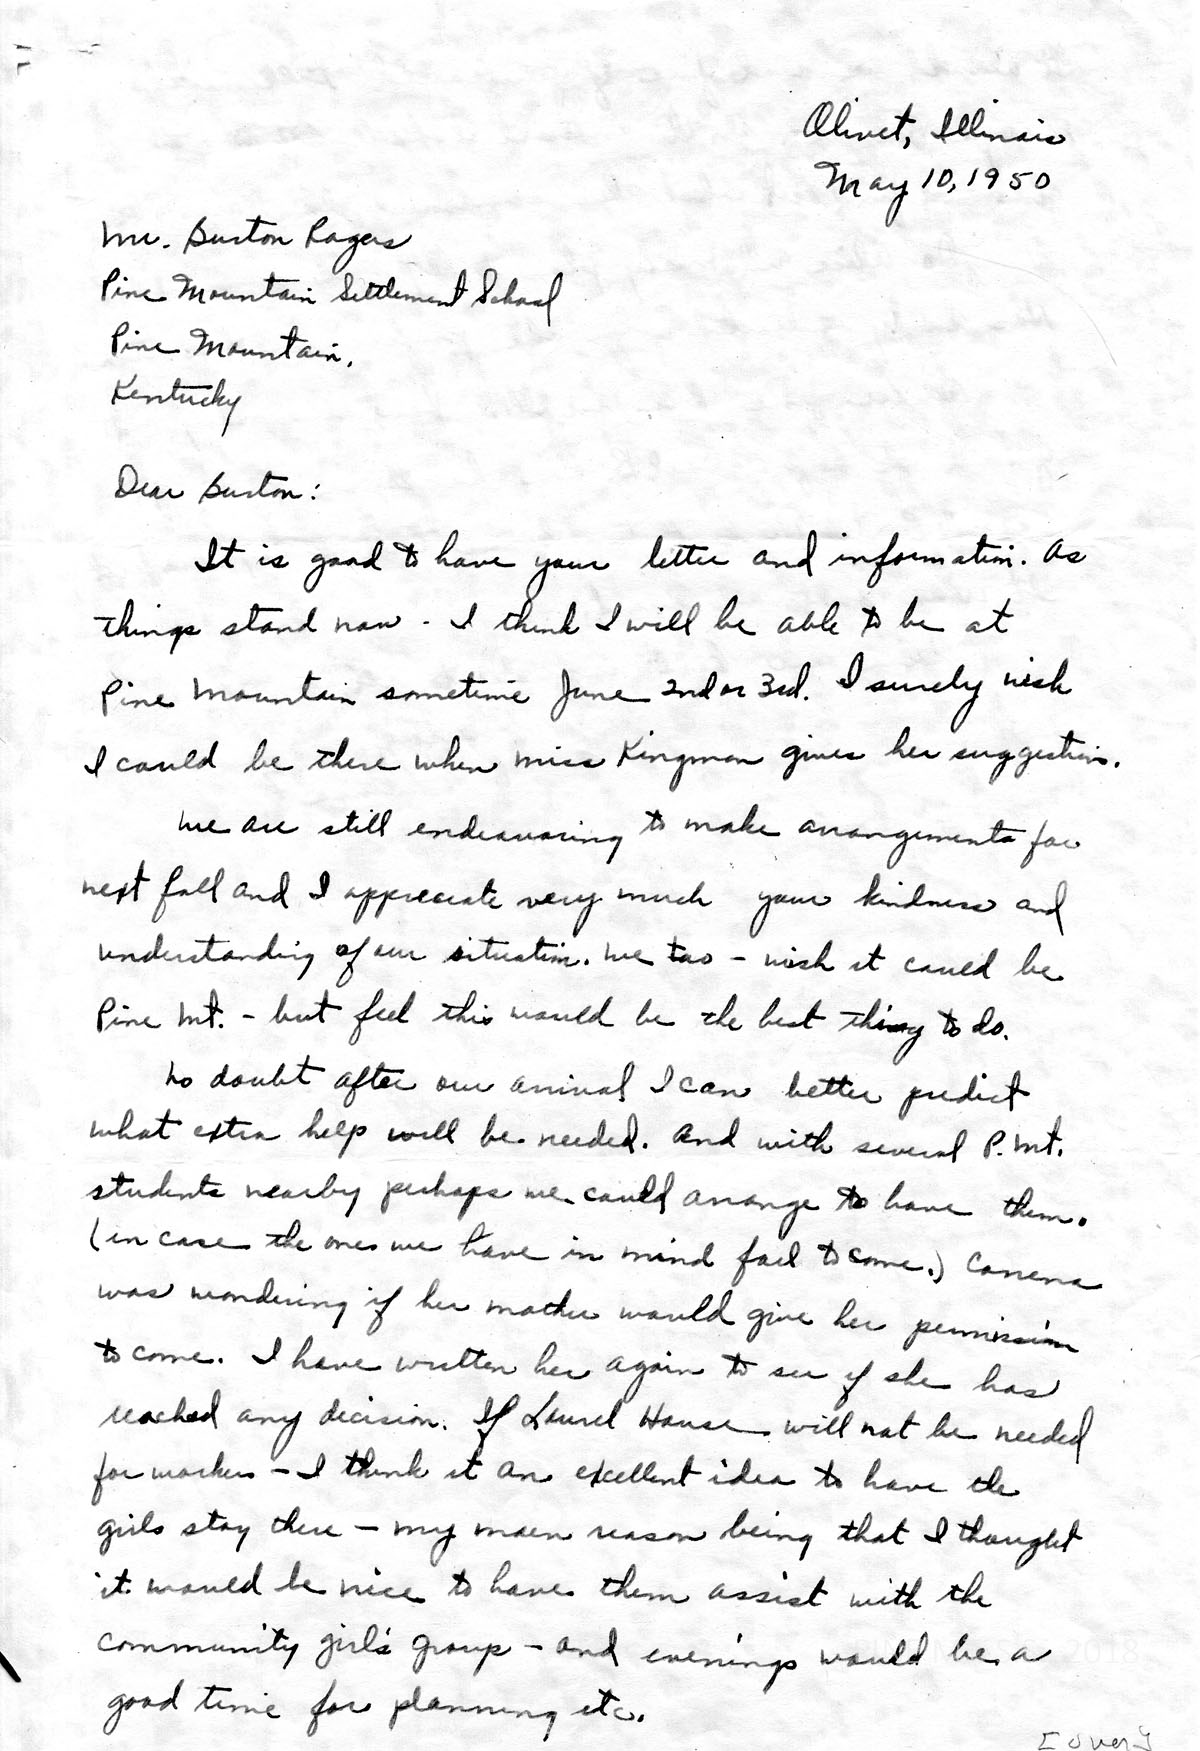 Olivet, Illinois
May 10, 1950
Mr. Burton Rogers
Pine Mountain Settlement School
Pine Mountain,
Kentucky
Dear Burton:
It is good to have your letter and information. As
things stand now - I think I will be able to be at
Pine Mountain sometime June 2nd or 3rd. I surely wish
I could be there when Miss Kingman gives her suggestions.
We are still endeavoring to make arrangements for
next fall and I appreciate very much your kindness and
understanding of our situation. We too - wish it could be
Pine Mt. - but feel this would be the best thing to do.
No doubt after our arrival I can better predict
what extra help will be needed. And with several P. Mt.
students nearby perhaps we could arrange to have them.
(in case the ones we have in mind fail to come.) Conena
was wondering if her mother would give her permission
to come. I have written her again to see if she has
reached any decision. If Laurel House will not be needed
for workers - I think it an excellent idea to have the
girls stay there - my main reason being that I thought
it would be nice to have them assist with the
community girl's group - and evenings would be a
good time for planning etc.
[over]
2018